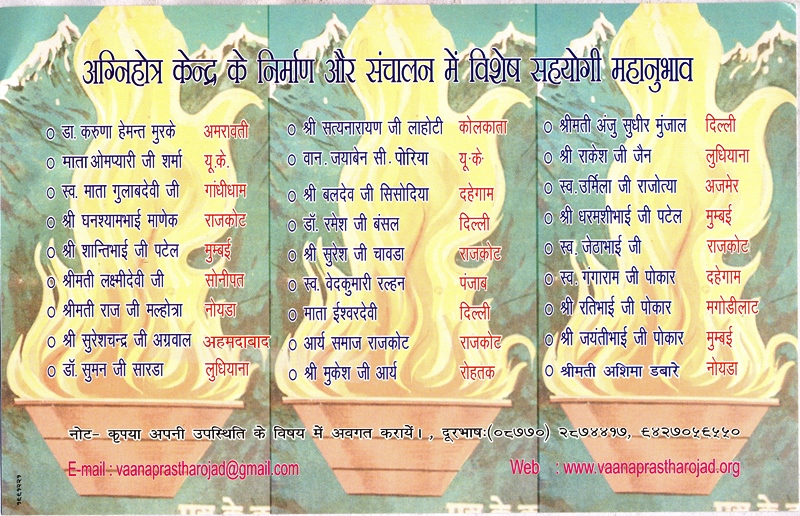 अग्निहोत्र केन्द्र के निर्माण और संचालन में विशेष सहयोगी महानुभाव
० डा. करुणा हेमन्त मुरके अमरावती
० माता ओमप्यारी जी शर्मा यू.के.
० स्व. माता गुलाबदेवी जी गांधीधाम
० श्री घनश्यामभाई माणेक राजकोट
० श्री शान्तिभाई जी पटेल मुम्बई
० श्रीमती लक्ष्मीदेवी जी सोनीपत
० श्रीमती राज जी मल्होत्रा नोयडा
० श्री सुरेशचन्द्र जी अग्रवाल अहमदाबाद
० डॉ. सुमन जी सारडा लुधियाना
० श्री सत्यनारायण जी लाहोटी कोलकाता
० वान. जयाबेन सी. पोरिया यू.के.
० श्री बलदेव जी सिसोदिया दहेगाम
० डॉ. रमेश जी बंसल दिल्ली
० श्री सुरेश जी चावडा राजकोट
० स्व. वेदकुमारी रल्हन पंजाब
० माता ईश्वरदेवी दिल्ली
० आर्य समाज राजकोट राजकोट
० श्री मुकेश जी आर्य रोहतक
० श्रीमती अंजु सुधीर मुंजाल दिल्ली
० श्री राकेश जी जैन लुधियाना
० स्व. उर्मिला जी राजोत्या अजमेर
० श्री धरमशीभाई जी पटेल मुम्बई
० स्व. जेठाभाई जी राजकोट
० स्व. गंगाराम जी पोकार दहेगाम
० श्री रतिभाई जी पोकार मगोडीलाट
० श्री जयंतीभाई जी पोकार मुम्बई
० श्रीमती अशिमा डबारे नोयडा
नोट- कृपया अपनी उपस्थिति के विषय में अवगत करायें। , दूरभाष:(०२७७०) २८७४४१७, ९४२७०५९५५०
E-mail : vaanaprastharojad@gmail.com Web. : www.vaanaprastharojad.org